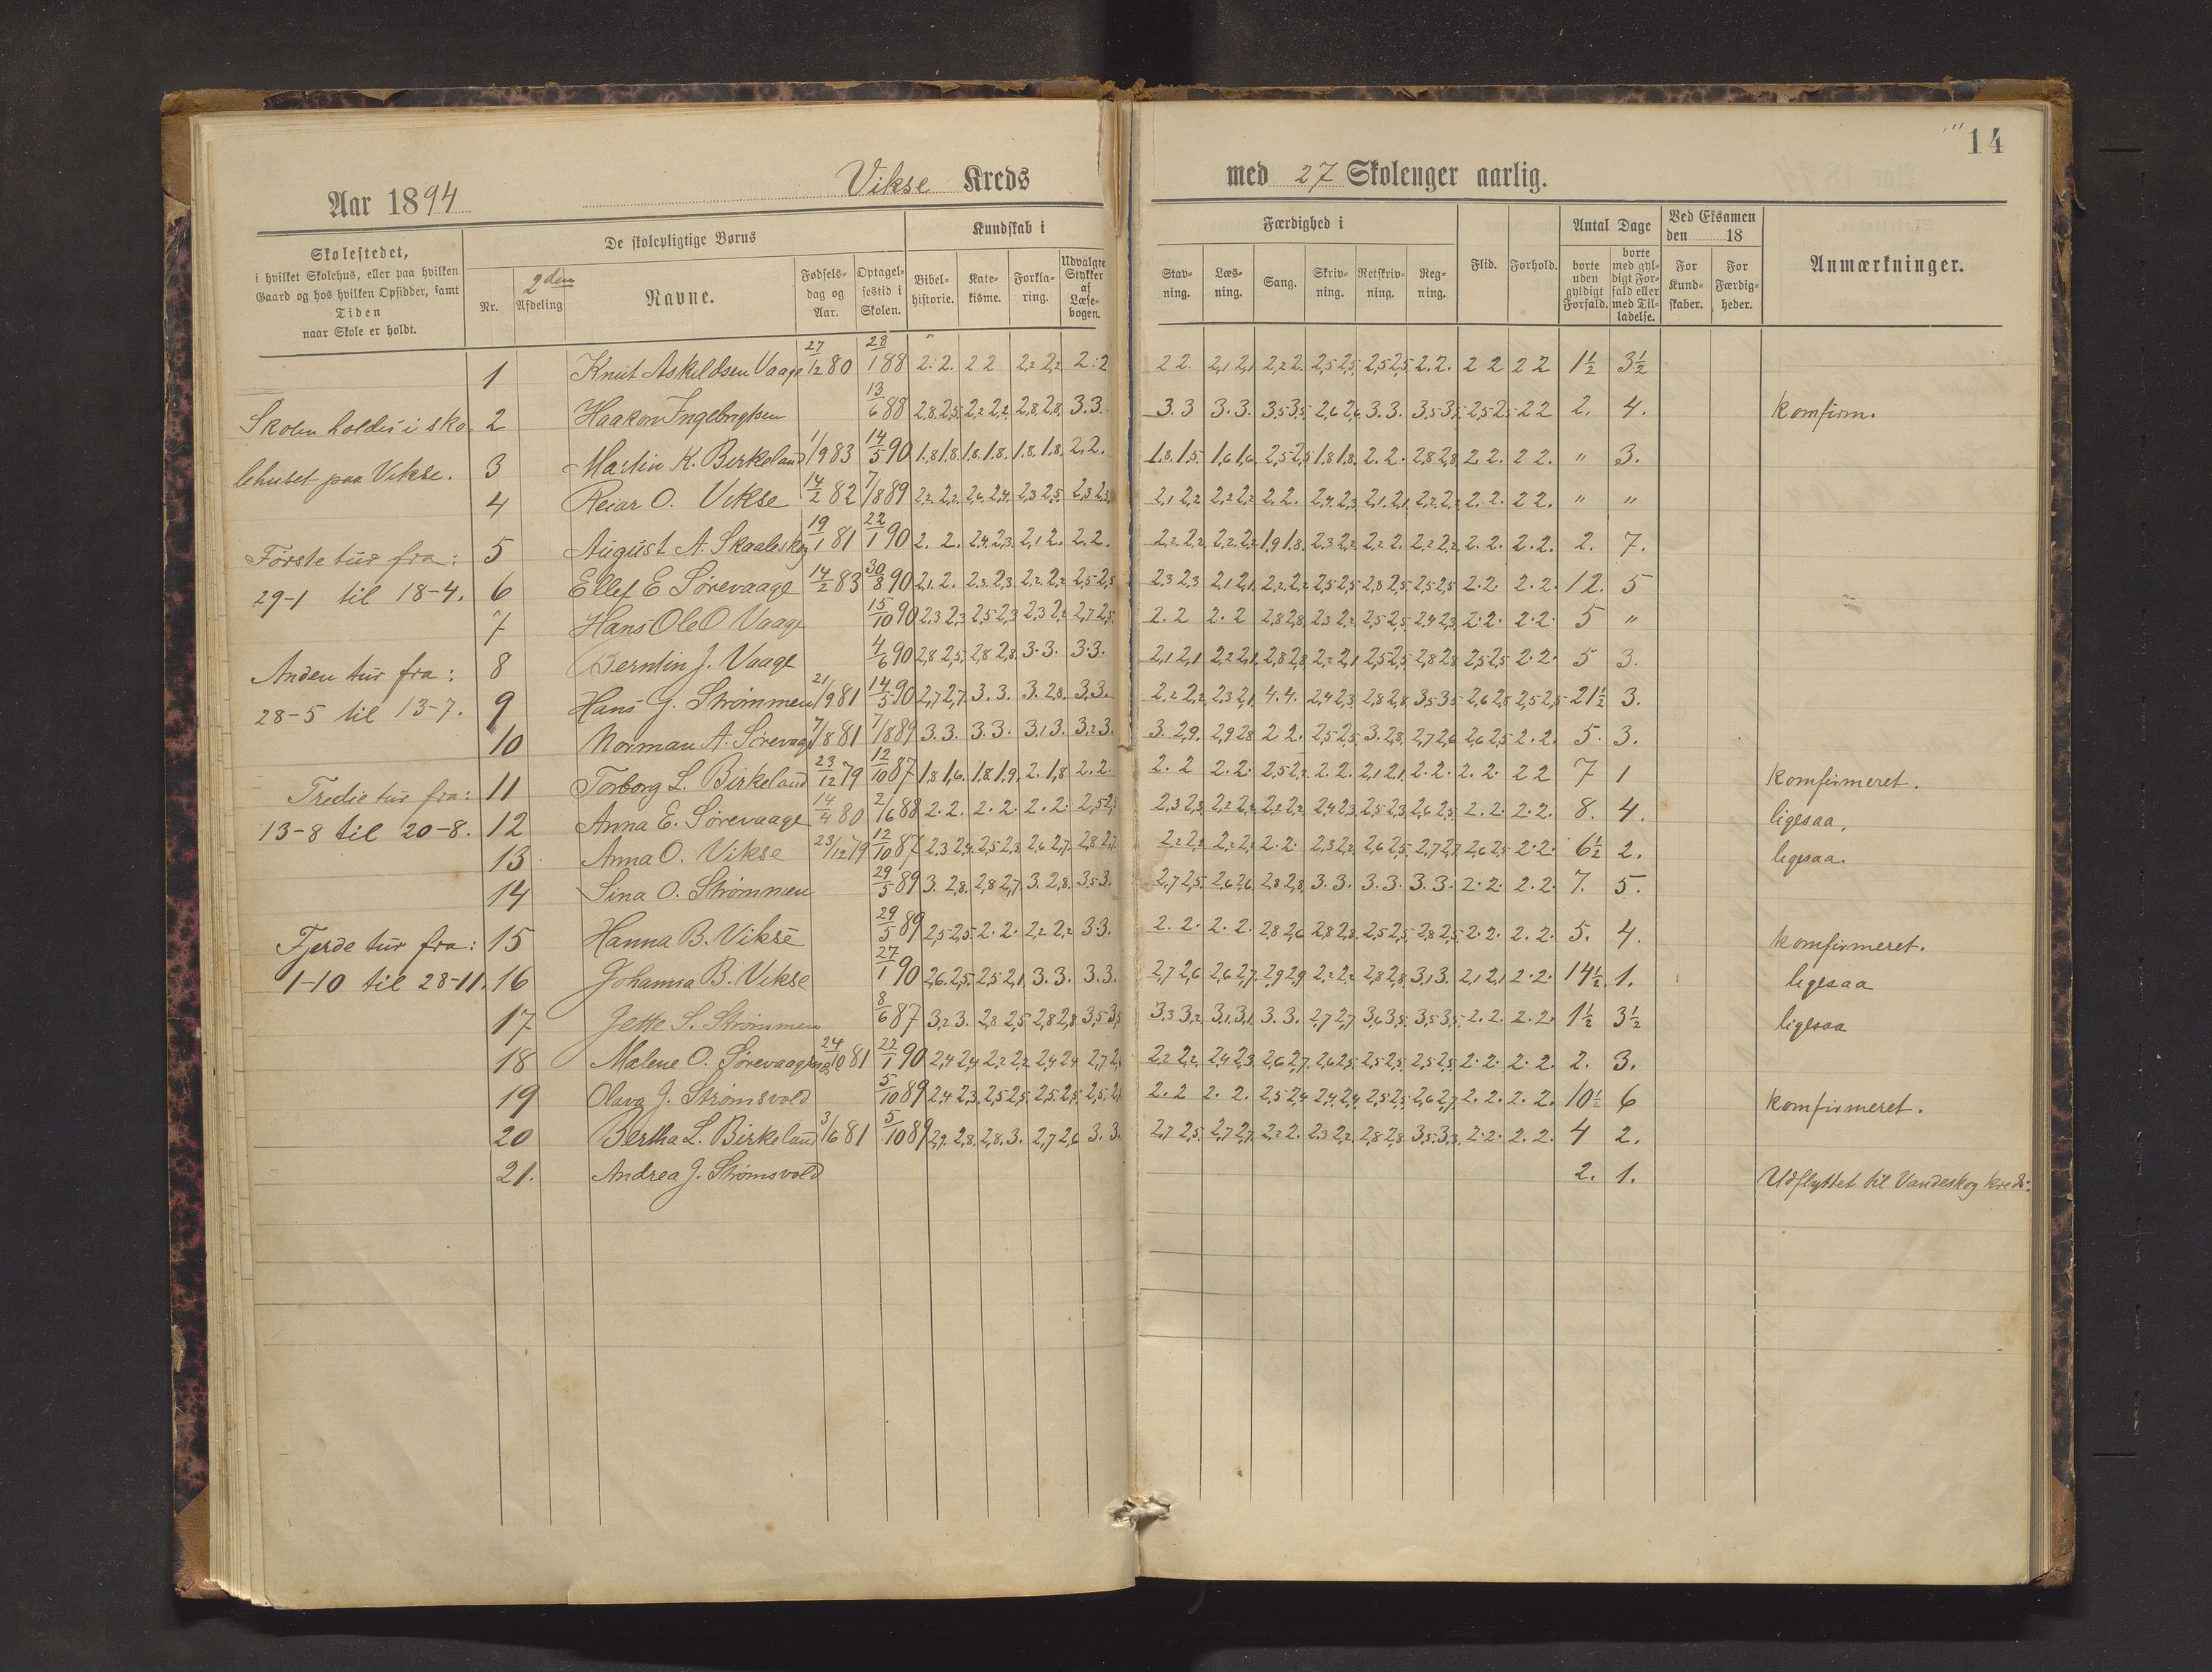 14
Aar 1894 Vikse Kreds med 27 Skoleuger aarlig.
Skolestedet,
i hvilket Skolehus, eller paa hvilken
Gaard og hos hvilken Opsidder, samt
Tiden
naar Skole er holdt.
De skolepligtige Børns
Nr.
2den
Afdeling
Navne.
Fødsels-
dag og
Aar.
Optagel-
sestid i
Skolen.
Kundskab i
Bibel-
historie.
Kate-
kisme.
Forkla-
ring.
Udvalgte
Stykker
af
Læse-
bogen.
Færdighed i
Stav-
ning.
Læs-
ning.
Sang.
Skriv-
ning.
Retskriv-
ning.
Reg-
ning.
Flid.
Forhold.
Antal Dage
borte
uden
gyldigt
Forfald.
borte
med gyl-
digt For-
fald eller
med Til-
ladelse.
Ved Eksamen
den 18
For
Kund-
skaber.
For
Færdig-
heder.
Anmærkninger.
Skolen holdes i sko-
lehuset paa Vikse.
Første tur fra:
29-1 til 18-4.
Anden tur fra:
28-5 til 13-7.
Tredie tur fra:
13-8 til 20-8.
Fjerde tur fra:
1-10 til 28-11.
1 Knut Askildsen Vaage 27/12 80 28/1 88 2.2. 2 2 2,2 2,2 2.2 2 2. 2,1 2,1 2,2 2. 2,5 2,5 2,5 2,5 2.2. 2 2 2 2 1½ 3½
2 Haakon Ingebrigtsen 13/6 88 2,8 2,5 2,2 2,2 2,8 2,8 3.3. 3.3 3.3. 3,5 3,5 2,6 2,6 3.3. 3,5 3,5 2,5 2,5 2 2 2. 4. komfirm.
3 Martin K. Birkeland 1/9 83 14/5 90 1,8 1,8 1,8 1,8 1,8 1,8 2.2. 1,8 1,5 1,6 1,6 2,5 2,5 1,8 1,8 2.2. 2,8 2,8 2 2. 2 2. " 3.
4 Reiar O. Vikse 14/2 82 7/8 89 2,2 2,2 2,6 2,4 2,3 2,5 2,3 2,3 2,1 2,2 2,2 2,2 2.2. 2,4 2,3 2,1 2,1 2,2 2,2 2.2. 2 2. " "
5 August A. Skaaleskog 19/1 81 22/1 90 2. 2. 2,4 2,3 2,1 2. 2.2. 2,2 2,2 2,2 2,2 1,9 1,8 2,3 2,2 2,2 2. 2,2 2,2 2.2. 2.2. 2. 7.
6 Ellef E Sørevaage 14/2 83 30/8 90 2,1 2. 2,3 2,3 2,2 2,2 2,5 2,5 2,3 2,3 2,1 2,1 2,2 2,2 2,5 2,5 2,8 2,5 2,5 2,5 2.2. 2.2. 12. 5
7 Hans Ole O Vaage 15/10 90 2,3 2,3 2,5 2,3 2,3 2,2 2,7 2,5 2.2 2.2 2,8 2,8 2,3 2,2 2,5 2,5 2,4 2,3 2.2. 2.2. 5 "
8 Berntin J. Vaage 4/6 90 2,8 2,5 2,8 2,8 3.3. 3.3. 2,1 2,1 2,2 2,1 2,8 2,8 2,2 2,1 2,5 2,5 2,8 2,8 2,5 2,5 2.2. 5 3.
9 Hans G. Strømmen 21/9 81 14/5 90 2,7 2,7 3.3. 3. 2,8 3.3. 2,2 2,2 2,3 2,1 4.4. 2,4 2,3 2,8 2,8 3,5 3,5 2,6 2,8 2,5 2,5 21½ 3.
10 Norman A. Sørevaage 7/8 81 7/8 89 3.3. 3.3. 3,1 3. 3,2 3. 3. 2,9 2,9 2,8 2 2. 2,5 2,5 3. 2,8 2,7 2,6 2,6 2,5 2.2. 5. 3.
11 Torborg L. Birkeland 23/12 79 12/10 87 1,8 1,6 1,8 1,9 2. 1,8 2.2. 2.2 2.2. 2,5 2,2 2.2. 2,1 2,1 2.2. 2.2. 2 2 7 1 komfirmeret.
12 Anna E. Sørevaage 14/4 80 2/6 88 2.2. 2.2. 2.2. 2,5 2,5 2,3 2,3 2,2 2,2 2,2 2,2 2,4 2,3 2,5 2,3 2,6 2,5 2.2. 2.2. 8. 4. ligesaa.
13 Anna O. Vikse 23/12 79 12/10 87 2,3 2,4 2,5 2,3 2,6 2,7 2,8 2,7 2,2 2,2 2,2 2,2 2.2. 2,3 2,2 2,6 2,5 2,7 2,7 2,6 2,5 2.2. 6½ 2. ligesaa.
14 Sina O. Strømmen 29/5 89 3. 2,8 2,8 2,7 3. 2,8 3,5 3. 2,7 2,5 2,6 2,6 2,8 2,8 3.3. 3.3. 3.3. 2.2. 2.2. 7. 5.
15 Hanna B. Vikse 29/5 89 2,5 2,5 2.2. 2,2 2,2 3 3. 2.2. 2.2. 2,8 2,6 2,8 2,8 2,5 2,5 2,8 2,5 2.2. 2.2. 5. 4. komfirmeret.
16 Johanna B. Vikse 27/1 90 2,6 2,5 2,5 2,1 3.3. 3.3. 2,7 2,6 2,6 2,7 2,9 2,9 2,2 2,2 2,8 2,8 3,1 3. 2,1 2,1 2.2. 14½ 1. ligesaa
17 Jette S. Strømmen 8/6 87 3,2 3. 2,8 2,5 2,8 2,8 3,5 3,5 3,3 3,2 3,1 3,1 3.3. 2,7 2,7 3,6 3,5 3,5 3,5 2.2. 2.2. 1½ 3½ ligesaa
18 Malene O. Sørevaagsnes 24/10 81 22/1 90 2,4 2,4 2,2 2,2 2,4 2,4 2,7 2,2 2,2 2,4 2,3 2,6 2,7 2,6 2,5 2,5 2,5 2,5 2,5 2.2. 2.2. 2. 3.
19 Olava J. Strømsvold 5/10 89 2,4 2,3 2,5 2,5 2,5 2,5 2,5 2.2 2.2. 2,5 2,4 2,4 2,4 2,5 2,5 2,6 2,7 2.2. 2.2. 10½ 6 komfirmeret.
20 Bertha L. Birkeland 3/6 81 5/10 89 2,9 2,8 2,8 3. 2,7 2,6 3.3. 2,7 2,5 2,7 2,7 2,2 2. 2,3 2,2 2,8 2,8 3,5 3,3 2.2. 2.2. 4 2.
21. Andrea J. Strømsvold 2. 1. Udflyttet til Vandeskog kreds.